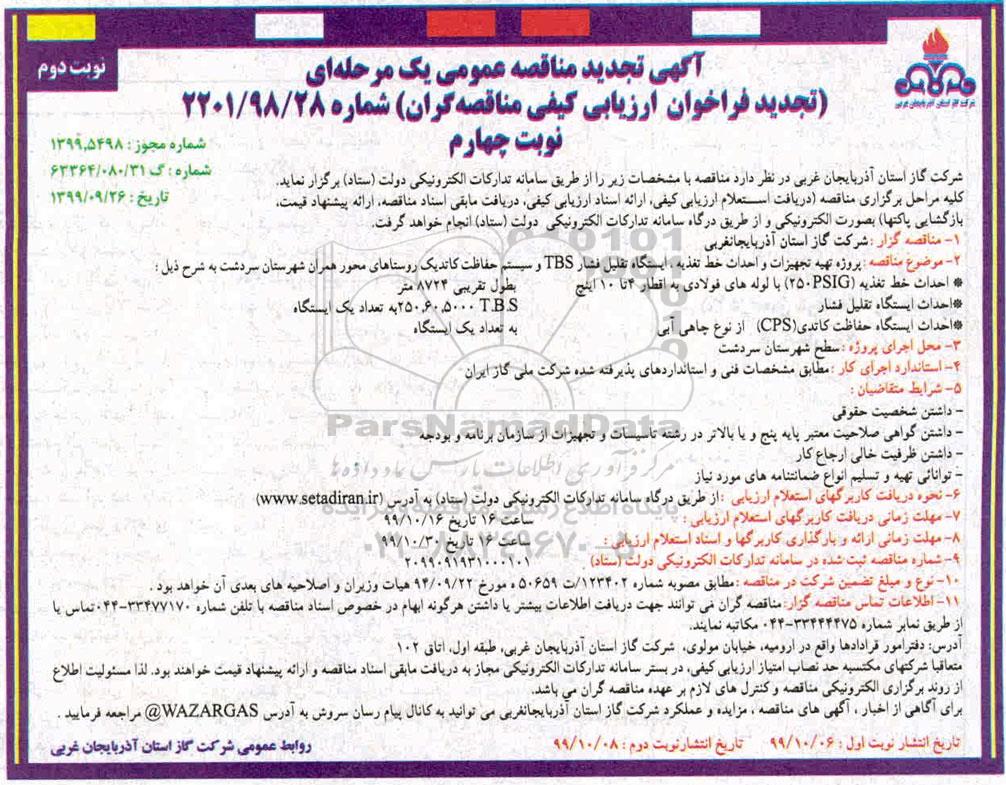 نوبت دوم
شرکت گاز استان آذربایجان غربی
آگهی تجدید مناقصه عمومی یک مرحله‌ای
(تجدید فراخوان ارزیابی کیفی مناقصه‌گران) شماره ۲۲۰۱/۹۸/۲۸
نوبت چهارم
شماره مجوز : ۱۳۹۹٫۵۴۹۸
شماره : گ ۶۳۳۶۴/۰۸۰/۳۱
تاریخ : ۱۳۹۹/۰۹/۲۶
شرکت گاز استان آذربایجان غربی در نظر دارد مناقصه با مشخصات زیر را از طریق سامانه تدارکات الکترونیکی دولت (ستاد) برگزار نماید.
کلیه مراحل برگزاری مناقصه (دریافت اسـتعلام ارزیابی کیفی، ارائه اسناد ارزیابی کیفی، دریافت مابقی اسناد مناقصه، ارائه پیشنهاد قیمت،
بازگشایی پاکتها) بصورت الکترونیکی و از طریق درگاه سامانه تدارکات الکترونیکی دولت (ستاد) انجام خواهد گرفت.
۱- مناقصه گزار : شرکت گاز استان آذربایجانغربی
۲- موضوع مناقصه : پروژه تهیه تجهیزات و احداث خط تغذیه ، ایستگاه تقلیل فشار TBS و سیستم حفاظت کاتدیک روستاهای محور همران شهرستان سردشت به شرح ذیل :
* احداث خط تغذیه (۲۵۰PSIG) با لوله های فولادی به اقطار ۴ تا ۱۰ اینچ بطول تقریبی ۸۷۲۴ متر
*احداث ایستگاه تقلیل فشار T.B.S ۲۵۰٫۶۰٫۵۰۰۰ به تعداد یک ایستگاه
*احداث ایستگاه حفاظت کاتدی(CPS) از نوع چاهی آبی به تعداد یک ایستگاه
۳- محل اجرای پروژه : سطح شهرستان سردشت
۴- استاندارد اجرای کار : مطابق مشخصات فنی و استانداردهای پذیرفته شده شرکت ملی گاز ایران
۵- شرایط متقاضیان :
– داشتن شخصیت حقوقی
– داشتن گواهی صلاحیت معتبر پایه پنج و یا بالاتر در رشته تاسیسات و تجهیزات از سازمان برنامه و بودجه
– داشتن ظرفیت خالی ارجاع کار
– توانائی تهیه و تسلیم انواع ضمانتنامه های مورد نیاز
۶- نحوه دریافت کاربرگهای استعلام ارزیابی : از طریق درگاه سامانه تدارکات الکترونیکی دولت (ستاد) به آدرس (www.setadiran.ir)
۷- مهلت زمانی دریافت کاربرگهای استعلام ارزیابی : ساعت ۱۶ تاریخ ۹۹/۱۰/۱۶
۸- مهلت زمانی ارائه و بارگذاری کاربرگها و اسناد استعلام ارزیابی : ساعت ۱۶ تاریخ ۹۹/۱۰/۳۰
۹- شماره مناقصه ثبت شده در سامانه تدارکات الکترونیکی دولت (ستاد) : ۲۰۹۹۰۹۱۹۳۱۰۰۰۱۰۱
۱۰- نوع و مبلغ تضمین شرکت در مناقصه : مطابق مصوبه شماره ۱۲۳۴۰۲/ت ۵۰۶۵۹ ه مورخ ۹۴/۰۹/۲۲ هیات وزیران و اصلاحیه های بعدی آن خواهد بود .
۱۱- اطلاعات تماس مناقصه گزار: مناقصه گران می توانند جهت دریافت اطلاعات بیشتر یا داشتن هرگونه ابهام در خصوص اسناد مناقصه با تلفن شماره ۳۳۴۷۷۱۷۰-۰۴۴ تماس یا
از طریق نمابر شماره ۳۳۴۴۴۴۷۵-۰۴۴ مکاتبه نمایند.
آدرس: دفترامور قراداها واقع در ارومیه، خیابان مولوی، شرکت گاز استان آذربایجان غربی، طبقه اول، اتاق ۱۰۲
متعاقبا شرکتهای مکتسبه حد نصاب امتیاز ارزیابی کیفی، در بستر سامانه تدارکات الکترونیکی مجاز به دریافت مابقی اسناد مناقصه و ارائه پیشنهاد قیمت خواهند بود. لذا مسئولیت اطلاع
از روند برگزاری الکترونیکی مناقصه و کنترل های لازم بر عهده مناقصه گران می باشد.
برای آگاهی از اخبار ، آگهی های مناقصه ، مزایده و عملکرد شرکت گاز استان آذربایجانغربی می توانید به کانال پیام رسان سروش به آدرس @WAZARGAS مراجعه فرمایید .
تاریخ انتشار نوبت اول : ۹۹/۱۰/۰۶ تاریخ انتشارنوبت دوم : ۹۹/۱۰/۰۸
روابط عمومی شرکت گاز استان آذربایجان غربی
ParsNamadData
مرکز فرآوری اطلاعات پارس نماد داده ها
پایگاه اطلاع رسانی مناقصه و مزایده
۰۲۱-۸۸۳۴۹۶۷۰-۵